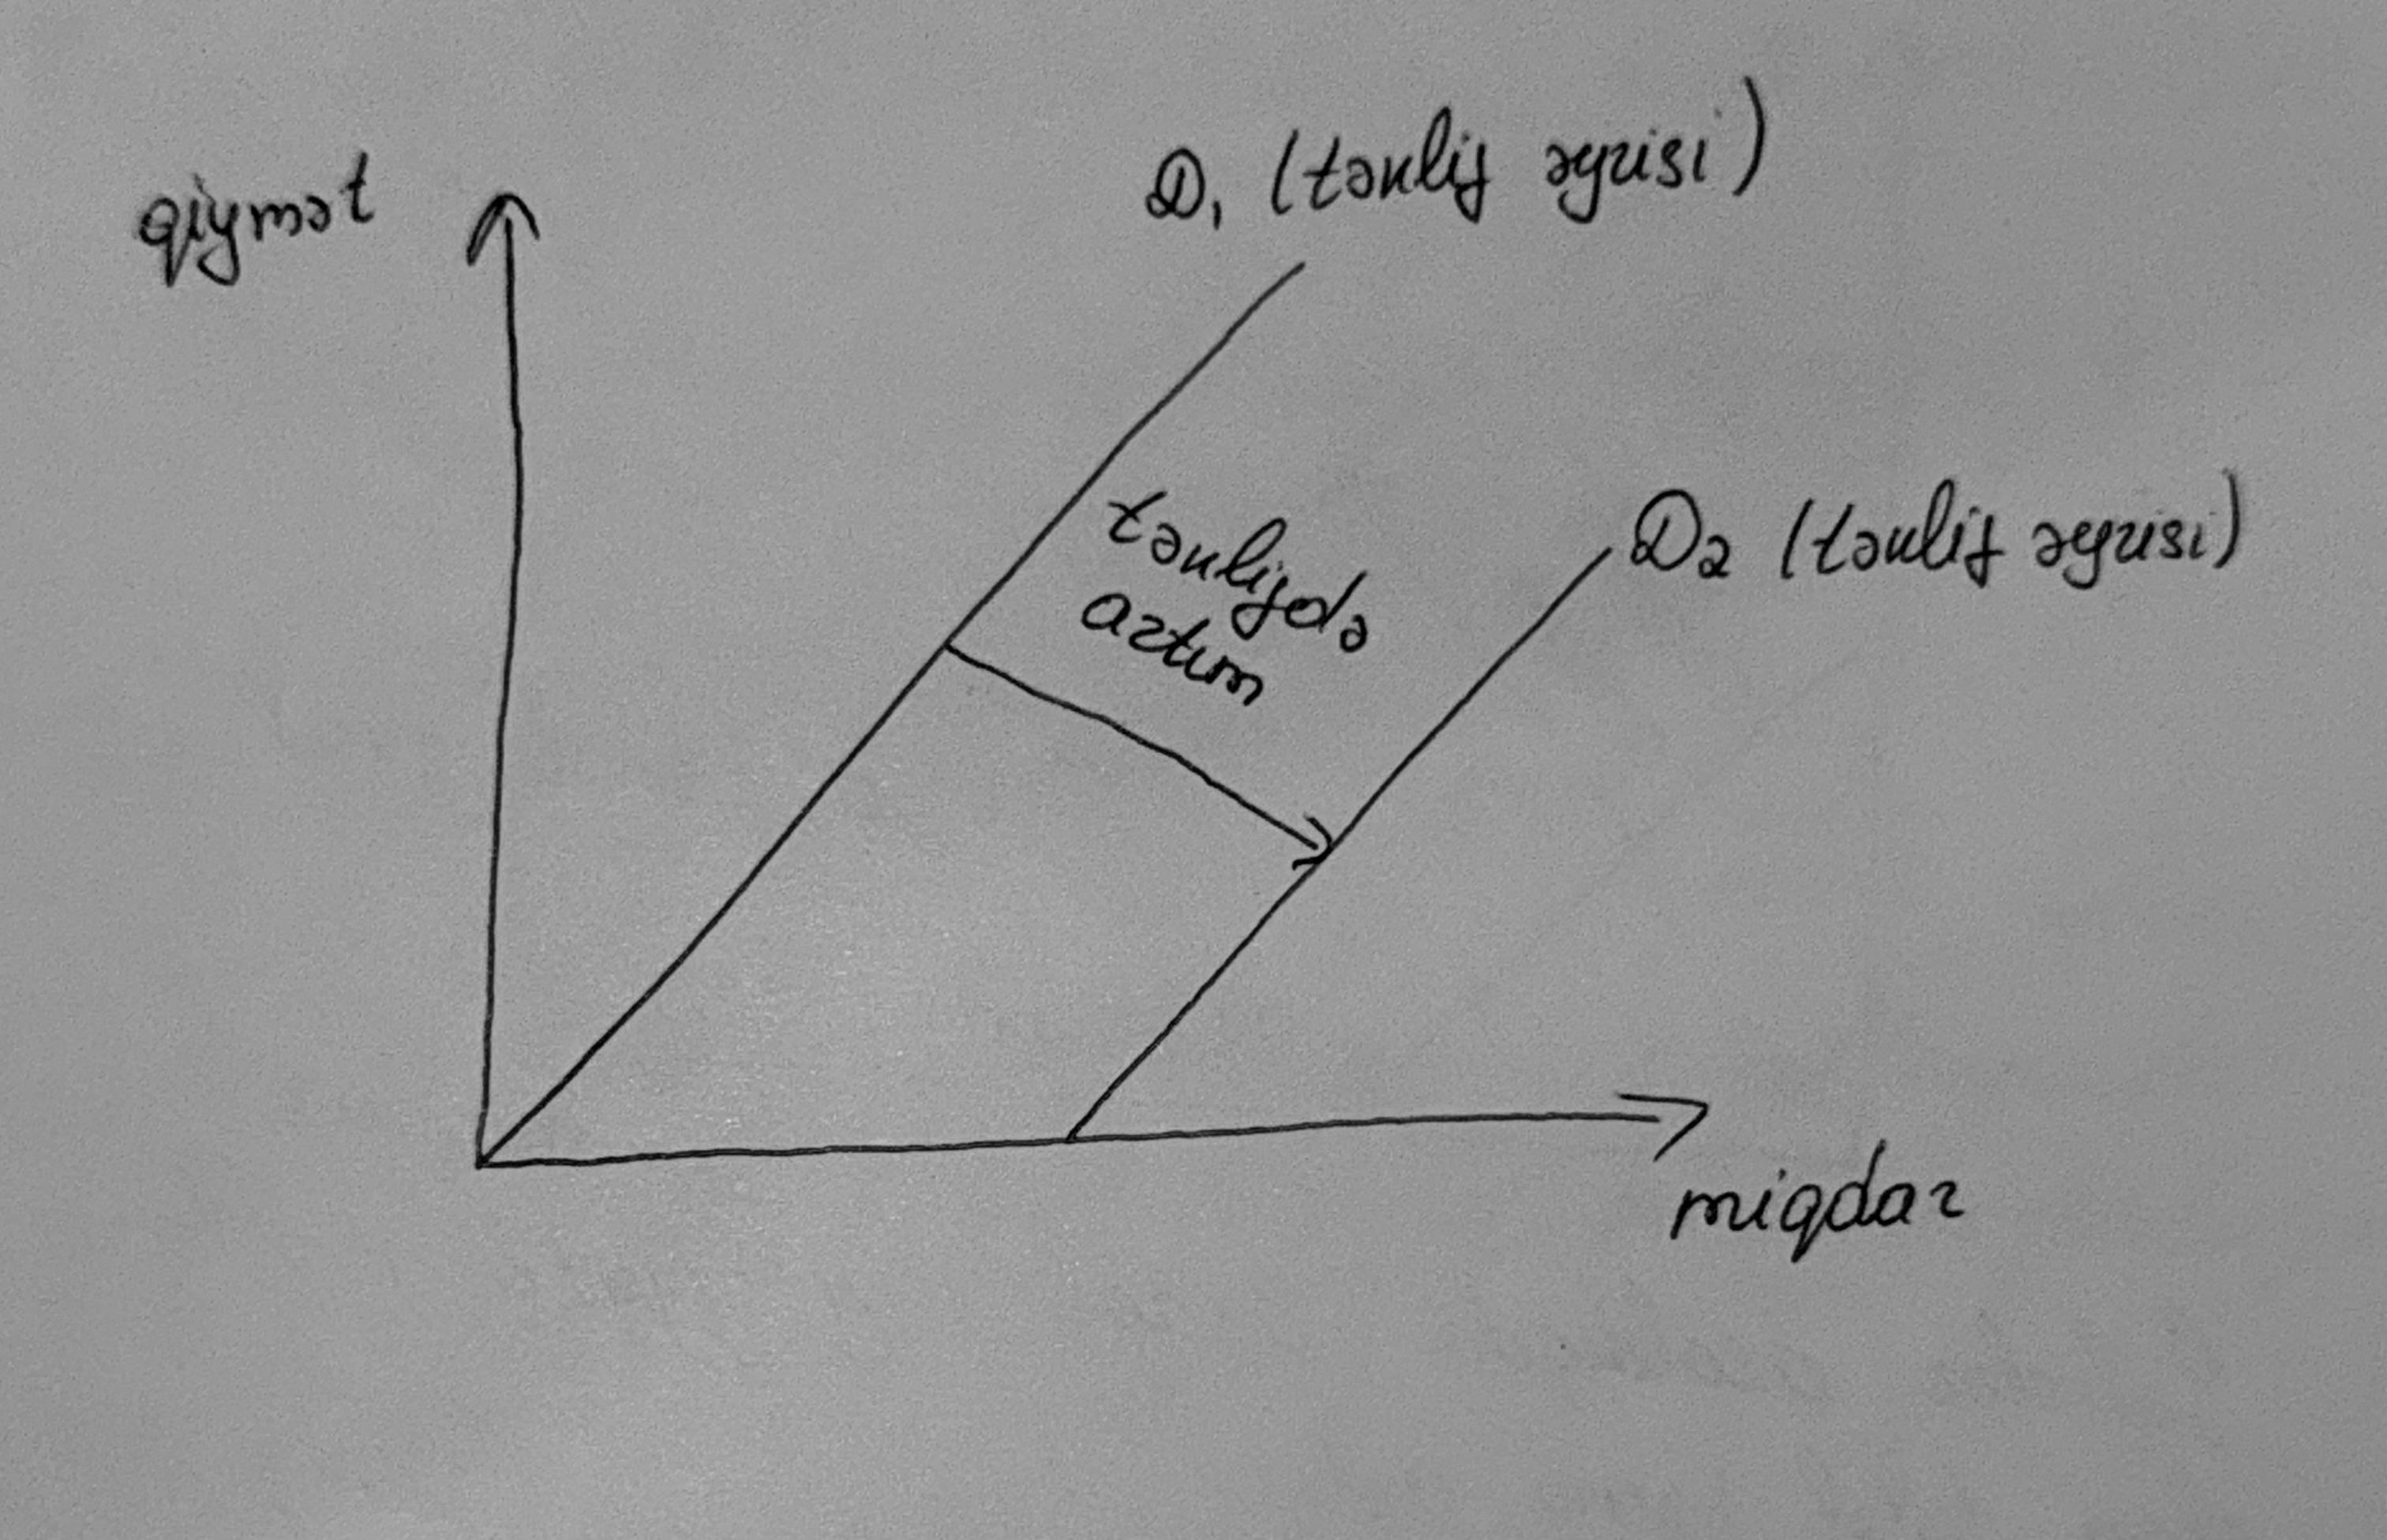 qiymət
D1 (təklif əyrisi)
təklifdə
artım
D2 (təklif əyrisi)
miqdar